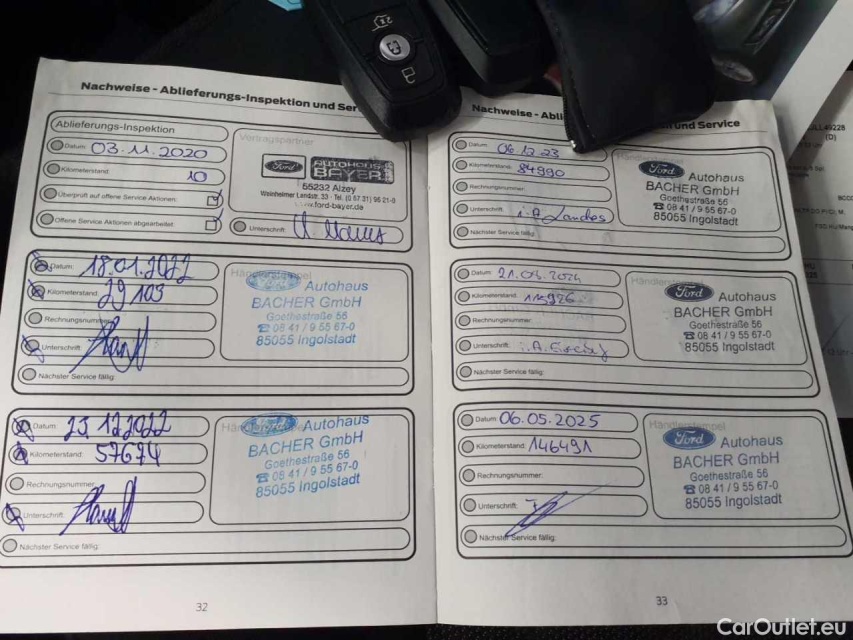 Nachweise - Ablieferungs-Inspektion und Ser
Ablieferungs-Inspektion
Datum: 03.11.2020
Kilometerstand: 10
Überprüft auf offene Service Aktionen:
Offene Service Aktionen abgearbeitet:
Vertragspartner
Ford AUTOHAUS BAYER
55232 Alzey
Weinheimer Landstr. 33 - Tel. (0 67 31) 96 21-0
www.ford-bayer.de
Unterschrift:
Datum: 18.01.2022
Kilometerstand: 29103
Rechnungsnummer:
Unterschrift:
Nächster Service fällig:
Händlerstempel
Ford Autohaus
BACHER GmbH
Goethestraße 56
☎ 08 41 / 9 55 67-0
85055 Ingolstadt
Datum: 23.12.2022
Kilometerstand: 57674
Rechnungsnummer:
Unterschrift:
Nächster Service fällig:
Ford Autohaus
BACHER GmbH
Goethestraße 56
☎ 08 41 / 9 55 67-0
85055 Ingolstadt
32
Nachweise - Abli
und Service
Datum: 06.12.23
Kilometerstand: 84990
Rechnungsnummer:
Unterschrift: i.A.
Nächster Service fällig:
Ford Autohaus
BACHER GmbH
Goethestraße 56
☎ 08 41 / 9 55 67-0
85055 Ingolstadt
Datum:
Kilometerstand:
Rechnungsnummer:
Unterschrift: i.A.
Nächster Service fällig:
Ford Autohaus
BACHER GmbH
Goethestraße 56
☎ 08 41 / 9 55 67-0
85055 Ingolstadt
Datum: 06.05.2025
Kilometerstand: 146491
Rechnungsnummer:
Unterschrift:
Nächster Service fällig:
Händlerstempel
Ford Autohaus
BACHER GmbH
Goethestraße 56
☎ 08 41 / 9 55 67-0
85055 Ingolstadt
33
CarOutlet.eu